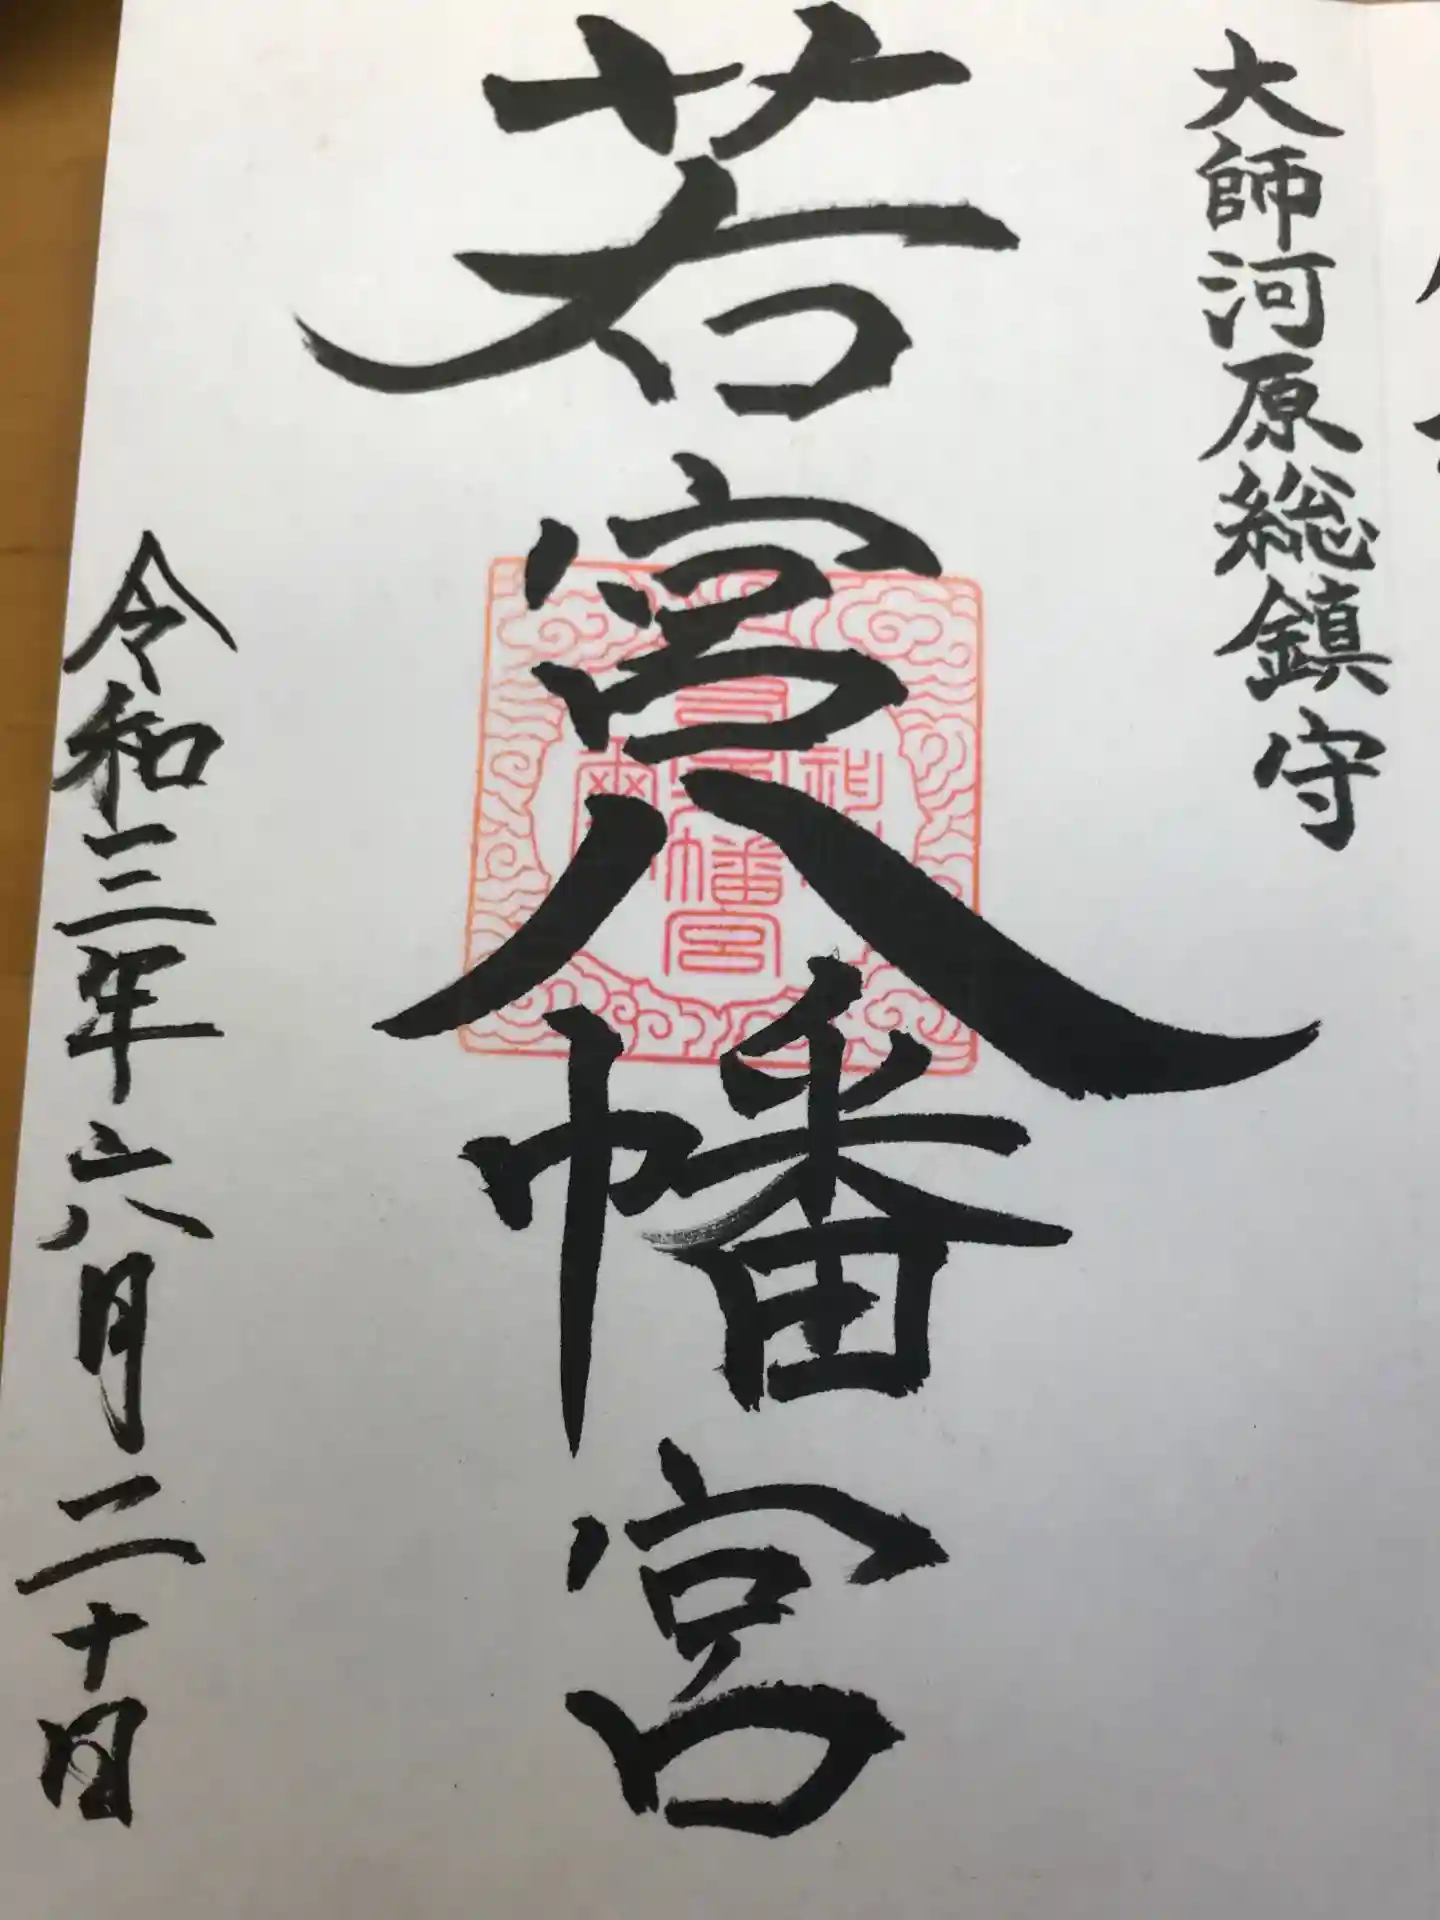 大師河原総鎮守
若宮八幡宮
令和三年六月二十日